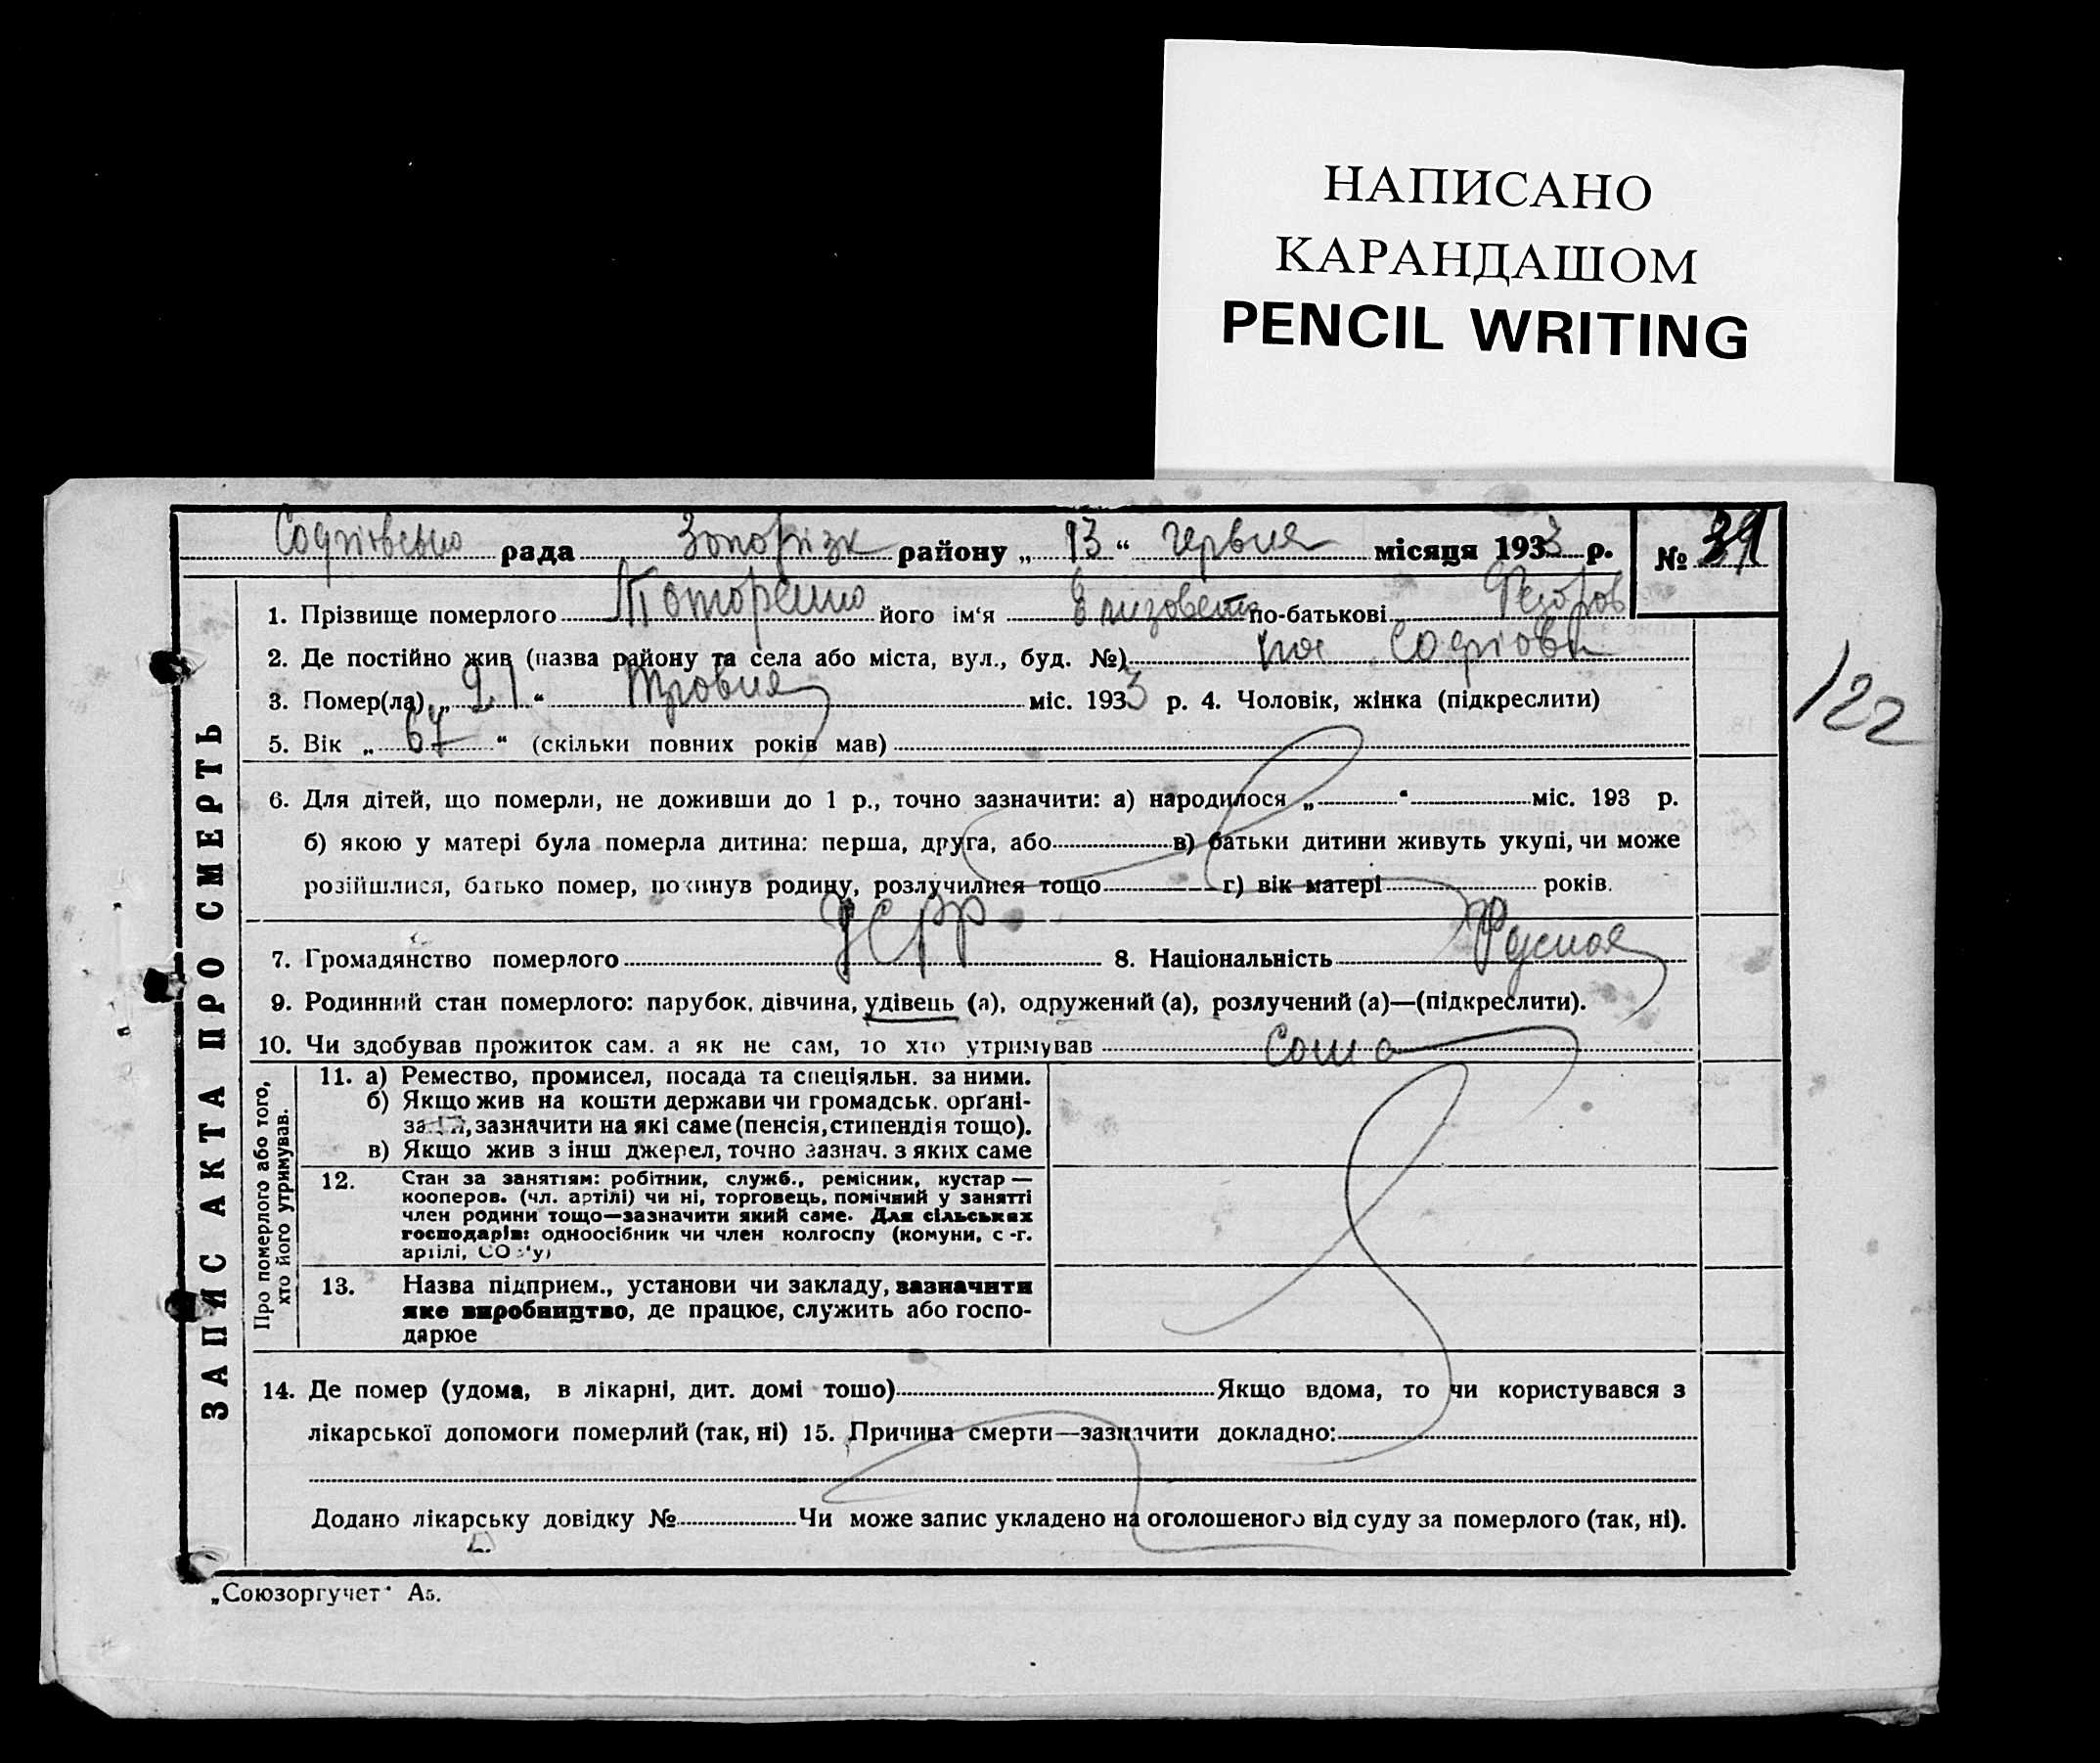 НАПИСАНО
КАРАНДАШОМ
PENCIL WRITING
рада Запоріжк району „ 13 “ червня місяця 1933 р. № 39
1. Прізвище померлого його ім‘я Єлизовета по-батькові Федоров
2. Де постійно жив (назва району та села або міста, вул., буд. №)
3. Помер(ла) „ 21 “ міс. 1933 р. 4. Чоловік, жінка (підкреслити)
122
5. Вік „ 67 “ (скільки повних років мав)
6. Для дітей, що померли, не доживши до 1 р., точно зазначити: а) народилося „ “ міс. 193 р.
б) якою у матері була померла дитина: перша, друга, або в) батьки дитини живуть укупі, чи може
розійшлися, батько помер, покинув родину, розлучилися тощо г) вік матері років.
7. Громадянство померлого УСРР 8. Національність Руская
9. Родинний стан померлого: парубок, дівчина, удівець (а), одружений (а), розлучений (а)—(підкреслити).
10. Чи здобував прожиток сам. а як не сам, то хто утримував сома
ЗАПИС АКТА ПРО СМЕРТЬ
Про померлого або того,
хто його утримував.
11. а) Ремество, промисел, посада та спеціяльн. за ними.
б) Якщо жив на кошти держави чи громадськ. орґані-
зації, зазначити на які саме (пенсія, стипендія тощо).
в) Якщо жив з інш джерел, точно зазнач. з яких саме
12. Стан за заняттям: робітник, служб., ремісник, кустар —
кооперов. (чл. артілі) чи ні, торговець, помічний у занятті
член родини тощо—зазначити який саме. Для сільських
господарів: одноосібник чи член колгоспу (комуни, с.-г.
артілі, СОЗ‘у)
13. Назва підприєм., установи чи закладу, зазначити
яке виробництво, де працює, служить або госпо-
дарює
14. Де помер (удома, в лікарні, дит. домі тошо) Якщо вдома, то чи користувався з
лікарської допомоги померлий (так, ні) 15. Причина смерти—зазначити докладно:
Додано лікарську довідку № Чи може запис укладено на оголошеного від суду за померлого (так, ні).
„Союзоргучет“ А5.